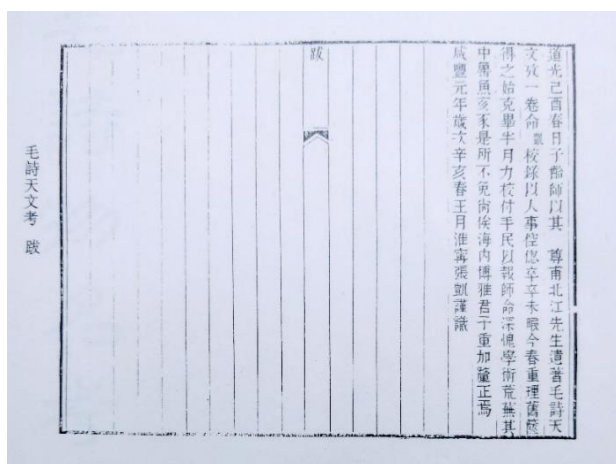 道光己酉春日子齡師以其　尊甫北江先生遺著毛詩天
文攷一卷命凱校錄以人事倥偬卒卒未暇今春重理舊篋
得之始克畢半月力校付手民以報師命深愧學術荒蕪其
中魯魚亥豕是所不免尙俟海內博雅君子重加釐正焉
咸豐元年歲次辛亥春王月淮寗張凱謹識
跋
毛詩天文考　跋